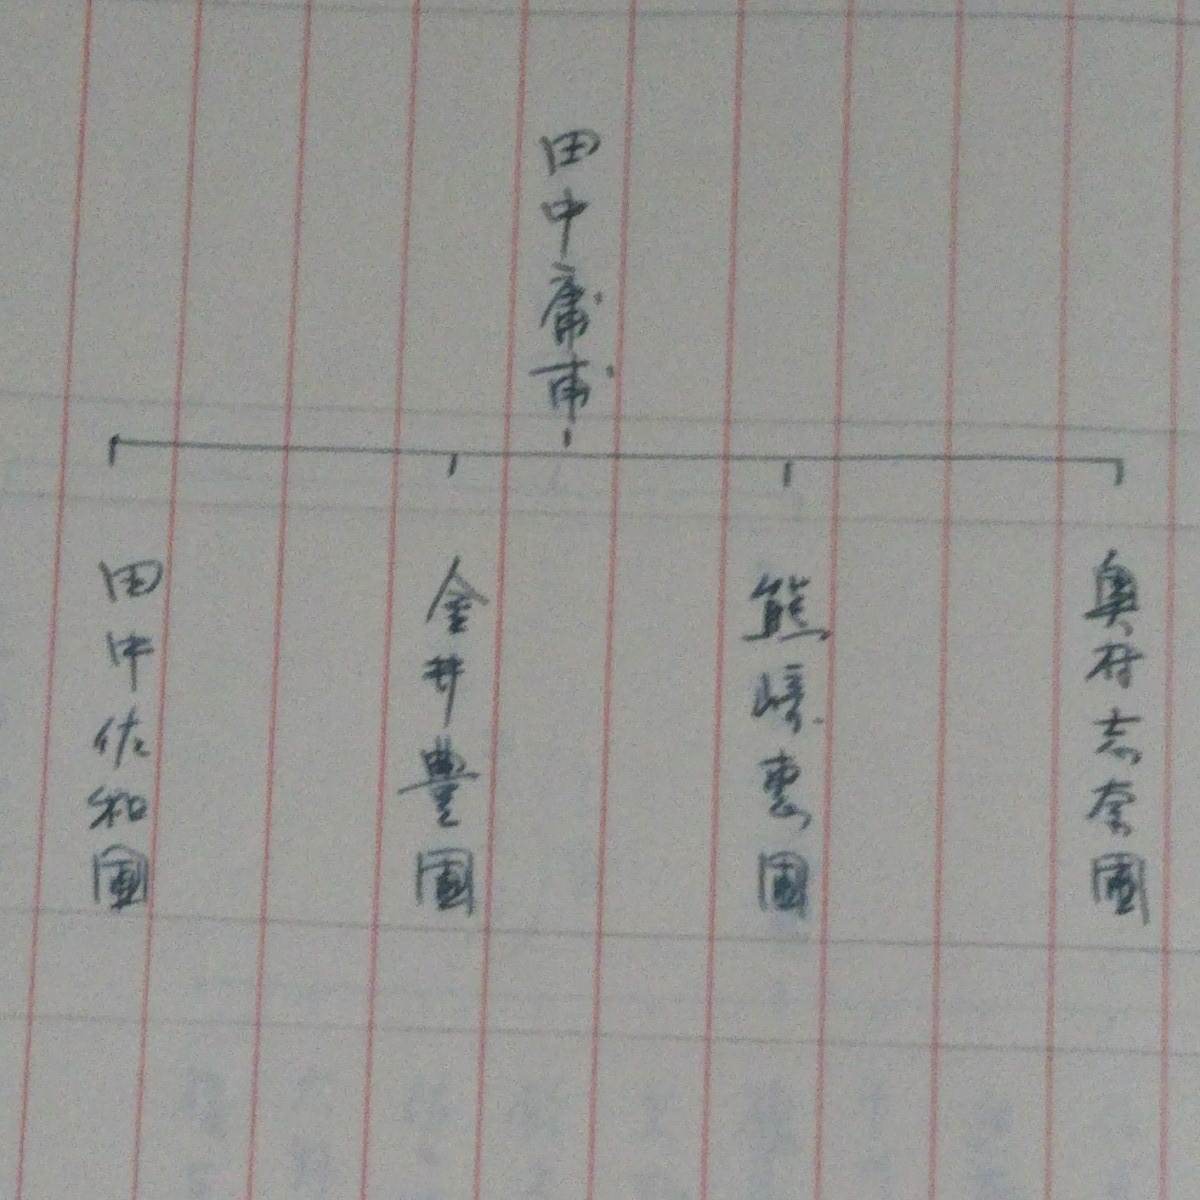 田中庸甫
奥村志奈園
熊崎恵園
金井豊園
田中佐和園